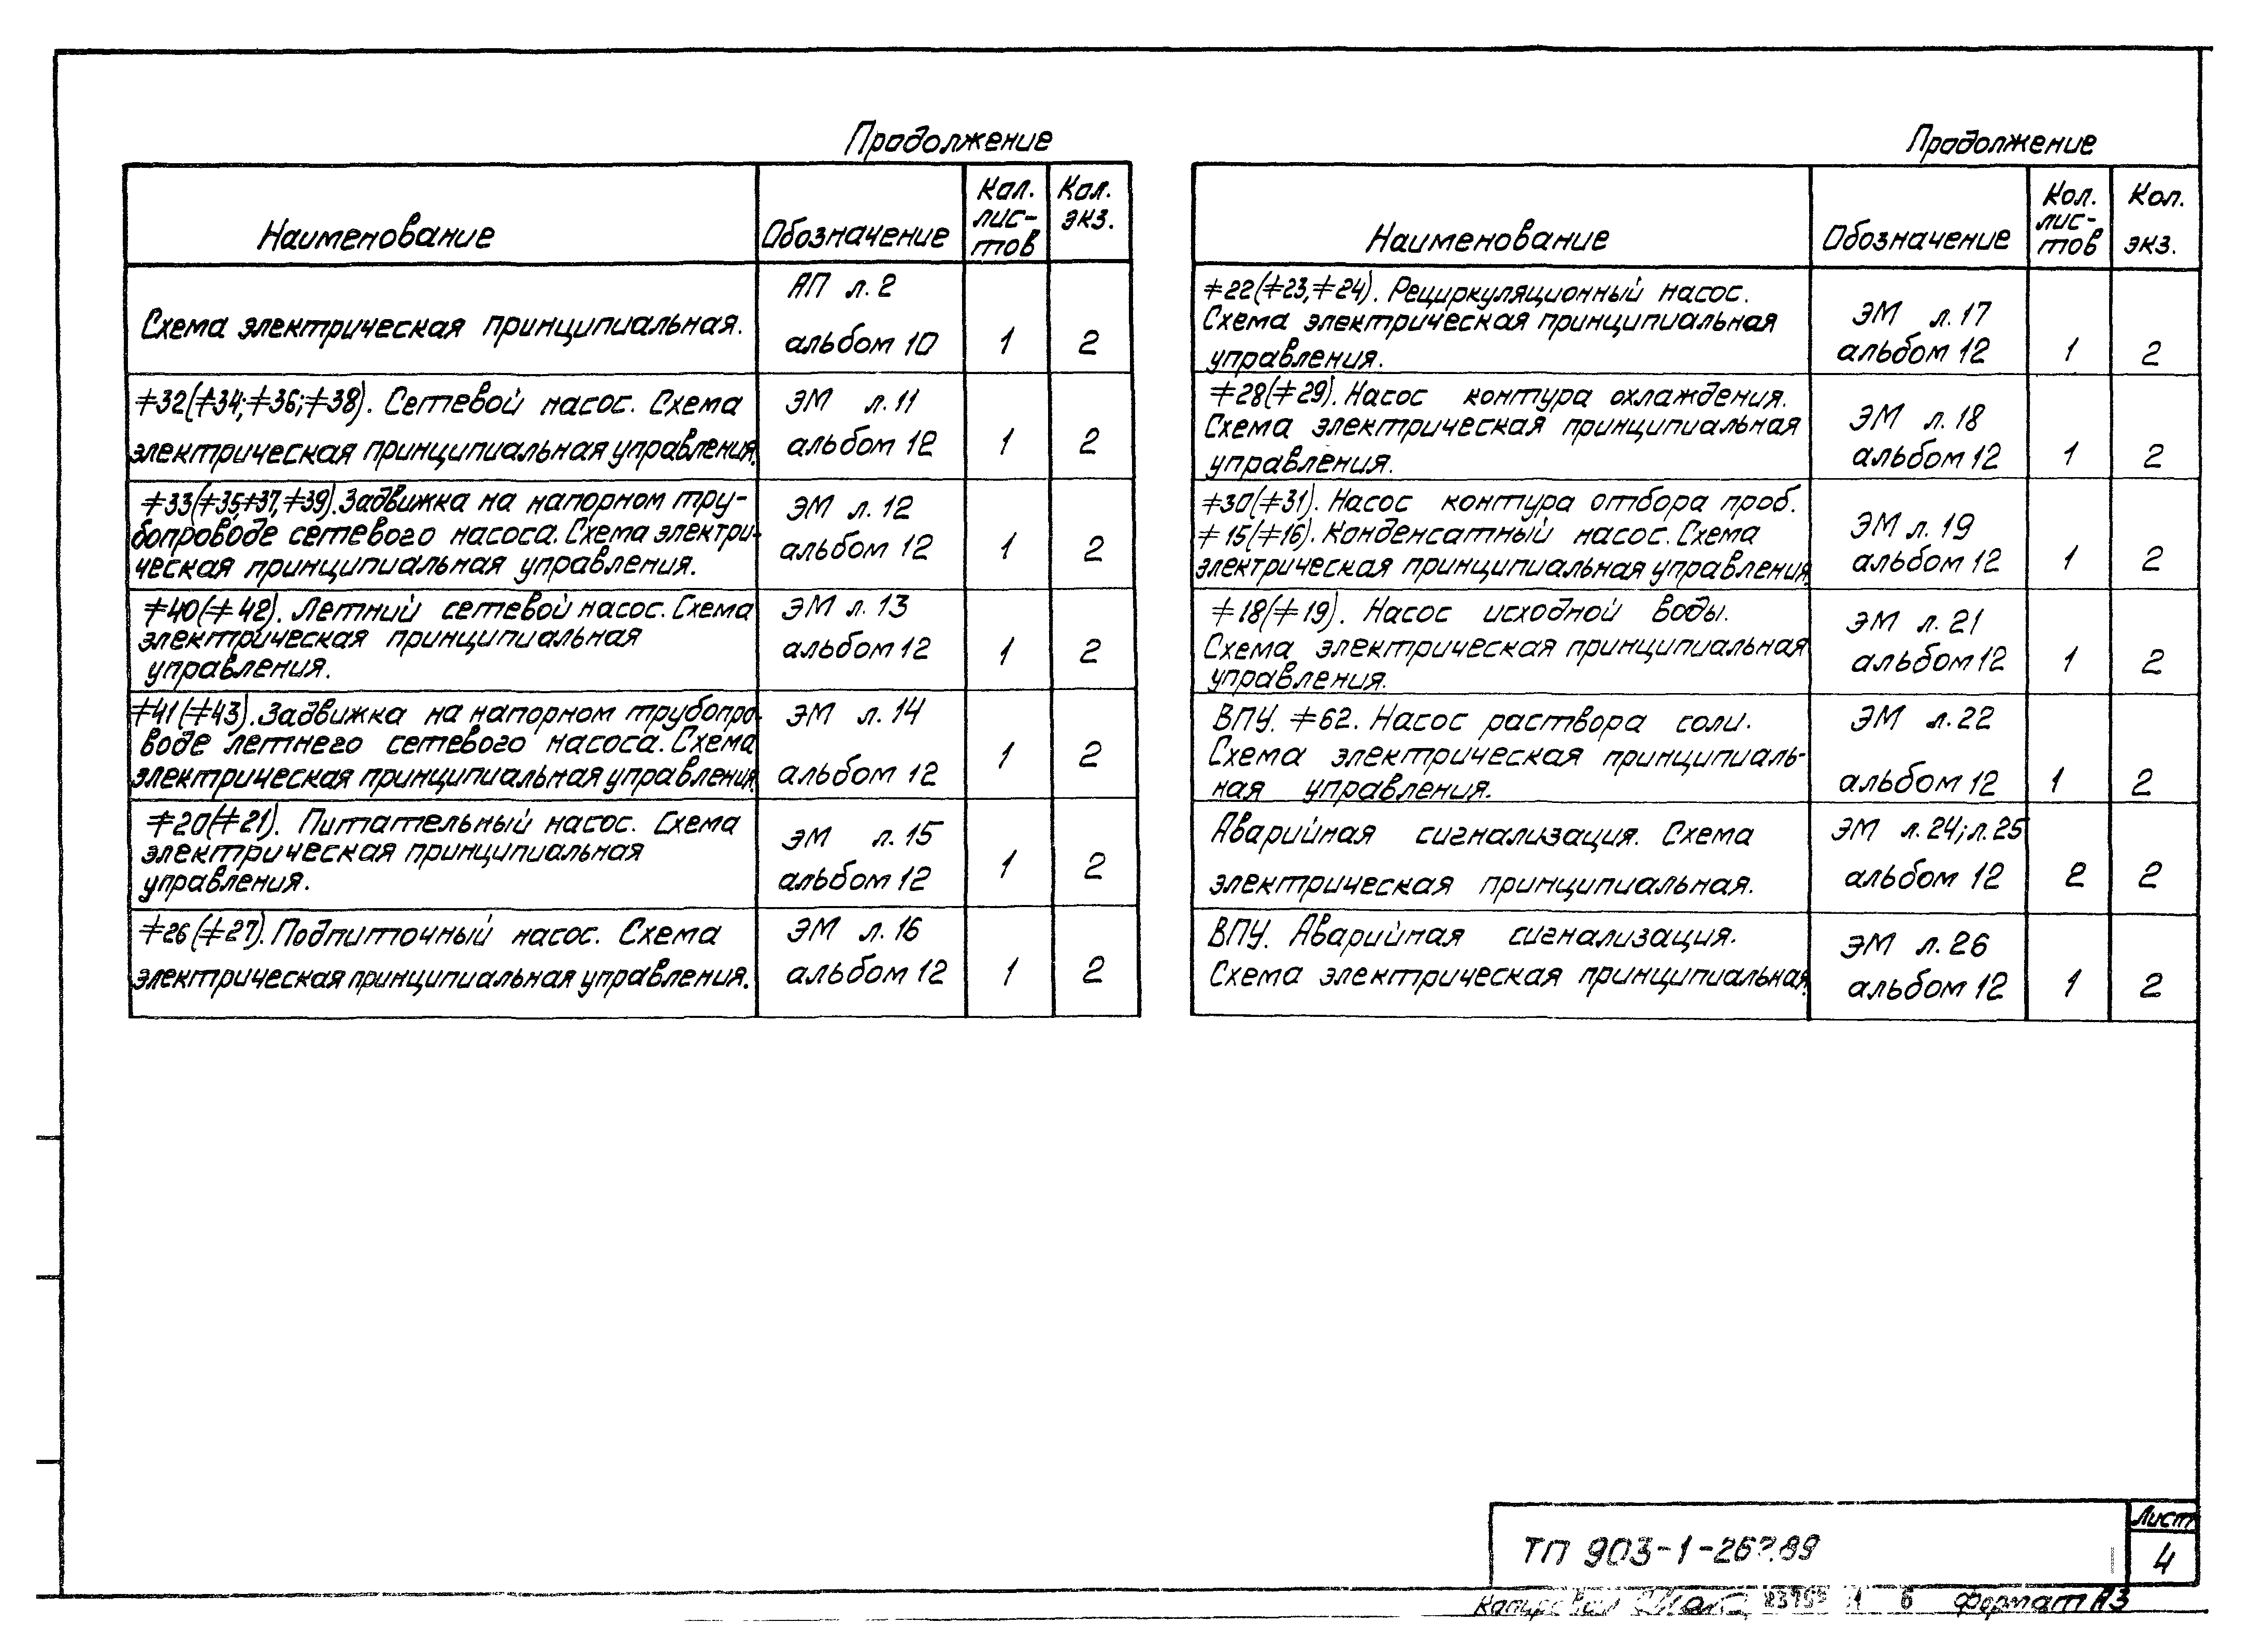 Продолжение
Наименование Обозначение Кол. лис- тов Кол. экз.
АП л. 2
Схема электрическая принципиальная.
альбом 10 1 2
≠32(≠34;≠36;≠38). Сетевой насос. Схема ЭМ л. 11
электрическая принципиальная управления. альбом 12 1 2
≠33(≠35,≠37,≠39). Задвижка на напорном тру- ЭМ л. 12
бопроводе сетевого насоса. Схема электри- альбом 12 1 2
ческая принципиальная управления.
≠40(≠42). Летний сетевой насос. Схема ЭМ л. 13
электрическая принципиальная альбом 12 1 2
управления.
≠41(≠43). Задвижка на напорном трубопро- ЭМ л. 14
воде летнего сетевого насоса. Схема 1 2
электрическая принципиальная управления. альбом 12
≠20(≠21). Питательный насос. Схема ЭМ л. 15
электрическая принципиальная 1 2
управления. альбом 12
≠26(≠27). Подпиточный насос. Схема ЭМ л. 16
электрическая принципиальная управления. альбом 12 1 2
Продолжение
Наименование Обозначение Кол. лис- тов Кол. экз.
≠22(≠23,≠24). Рециркуляционный насос.
Схема электрическая принципиальная ЭМ л. 17
управления. альбом 12 1 2
≠28(≠29). Насос контура охлаждения.
Схема электрическая принципиальная ЭМ л. 18
управления. альбом 12 1 2
≠30(≠31). Насос контура отбора проб.
≠15(≠16). Конденсатный насос. Схема ЭМ л. 19
электрическая принципиальная управления. альбом 12 1 2
≠18(≠19). Насос исходной воды. ЭМ л. 21
Схема электрическая принципиальная альбом 12 1 2
управления.
ВПУ. ≠62. Насос раствора соли. ЭМ л. 22
Схема электрическая принципиаль-
ная управления. альбом 12 1 2
Аварийная сигнализация. Схема ЭМ л. 24; л. 25
электрическая принципиальная. альбом 12 2 2
ВПУ. Аварийная сигнализация. ЭМ л. 26
Схема электрическая принципиальная. альбом 12 1 2
ТП 903-1-267.89
Лист
4
Копировал 6 Формат А3